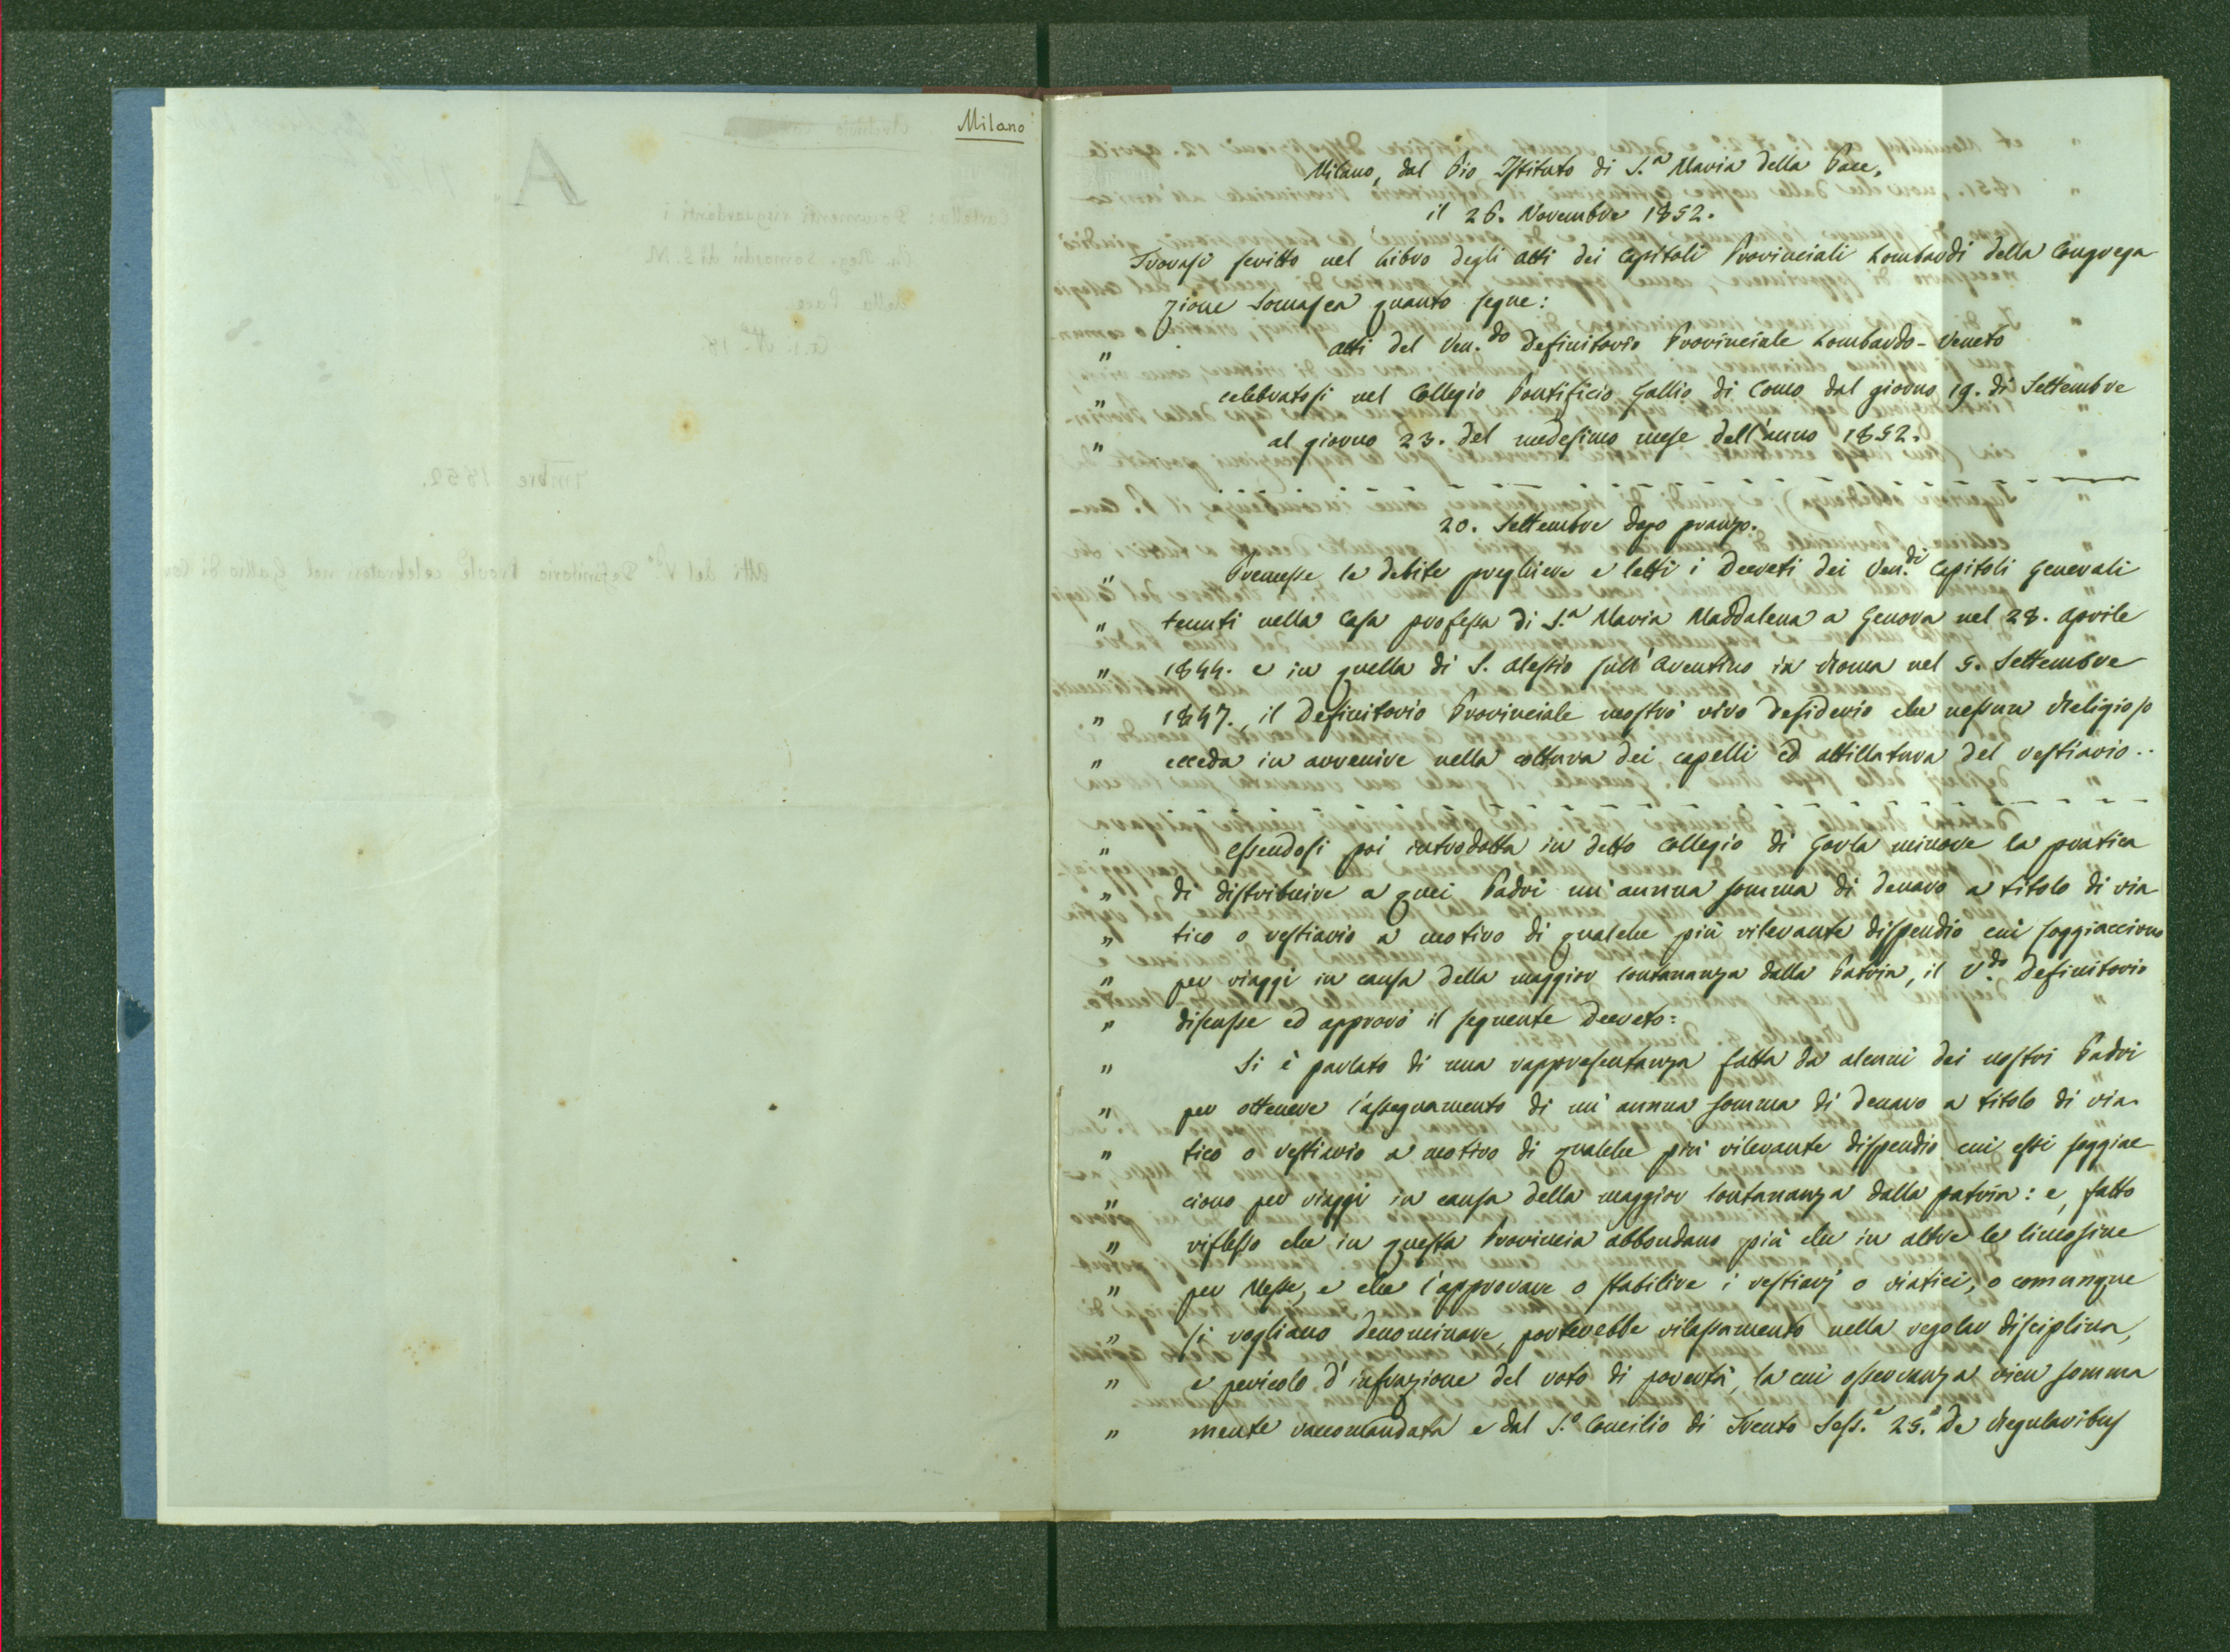 Milano
Milano, dal Pio Istituto di S.ª Maria della Pace,
il 26. Novembre 1852.
Trovasi scritto nel Libro degli Atti dei Capitoli Provinciali Lombardi della Congrega
zione Somasca quanto segue:
" Atti del Ven.do Definitorio Provinciale Lombardo-Veneto
" celebratosi nel Collegio Pontificio Gallio di Como dal giorno 19. di Settembre
" al giorno 23. del medesimo mese dell'anno 1852.
20. Settembre dopo pranzo.
" Premesse le debite preghiere e letti i Decreti dei Ven.di Capitoli Generali
" tenuti nella Casa professa di S.ª Maria Maddalena a Genova nel 28. Aprile
" 1844. e in quella di S. Alessio sull'Aventino in Roma nel 5. Settembre
" 1847., il Definitorio Provinciale mostrò vivo desiderio che nessun Religioso
" ecceda in avvenire nella coltura dei capelli ed attillatura del vestiario..
" Essendosi poi introdotta in detto Collegio di Gorla minore la pratica
" di distribuire a quei Padri un'annua somma di denaro a titolo di via
" tico o vestiario a motivo di qualche più rilevante dispendio cui soggiacciono
" per viaggi in causa della maggior lontananza dalla Patria, il V.do Definitorio
" discusse ed approvò il seguente Decreto:
" Si è parlato di una rappresentanza fatta da alcuni dei nostri Padri
" per ottenere l'assegnamento di un'annua somma di denaro a titolo di via-
" tico o vestiario a motivo di qualche più rilevante dispendio cui essi soggiac
" ciono per viaggi in causa della maggior lontananza dalla patria: e, fatto
" riflesso che in questa Provincia abbondano più che in altre le limosine
" per Messe, e che l'approvare o stabilire i vestiarj o viatici, o comunque
" si vogliano denominare, porterebbe rilassamento nella regolar disciplina,
" e pericolo d'infrazione del voto di povertà, la cui osservanza vien somma
" mente raccomandata e dal S.º Concilio di Trento Sess.e 25.ª De Regularibus